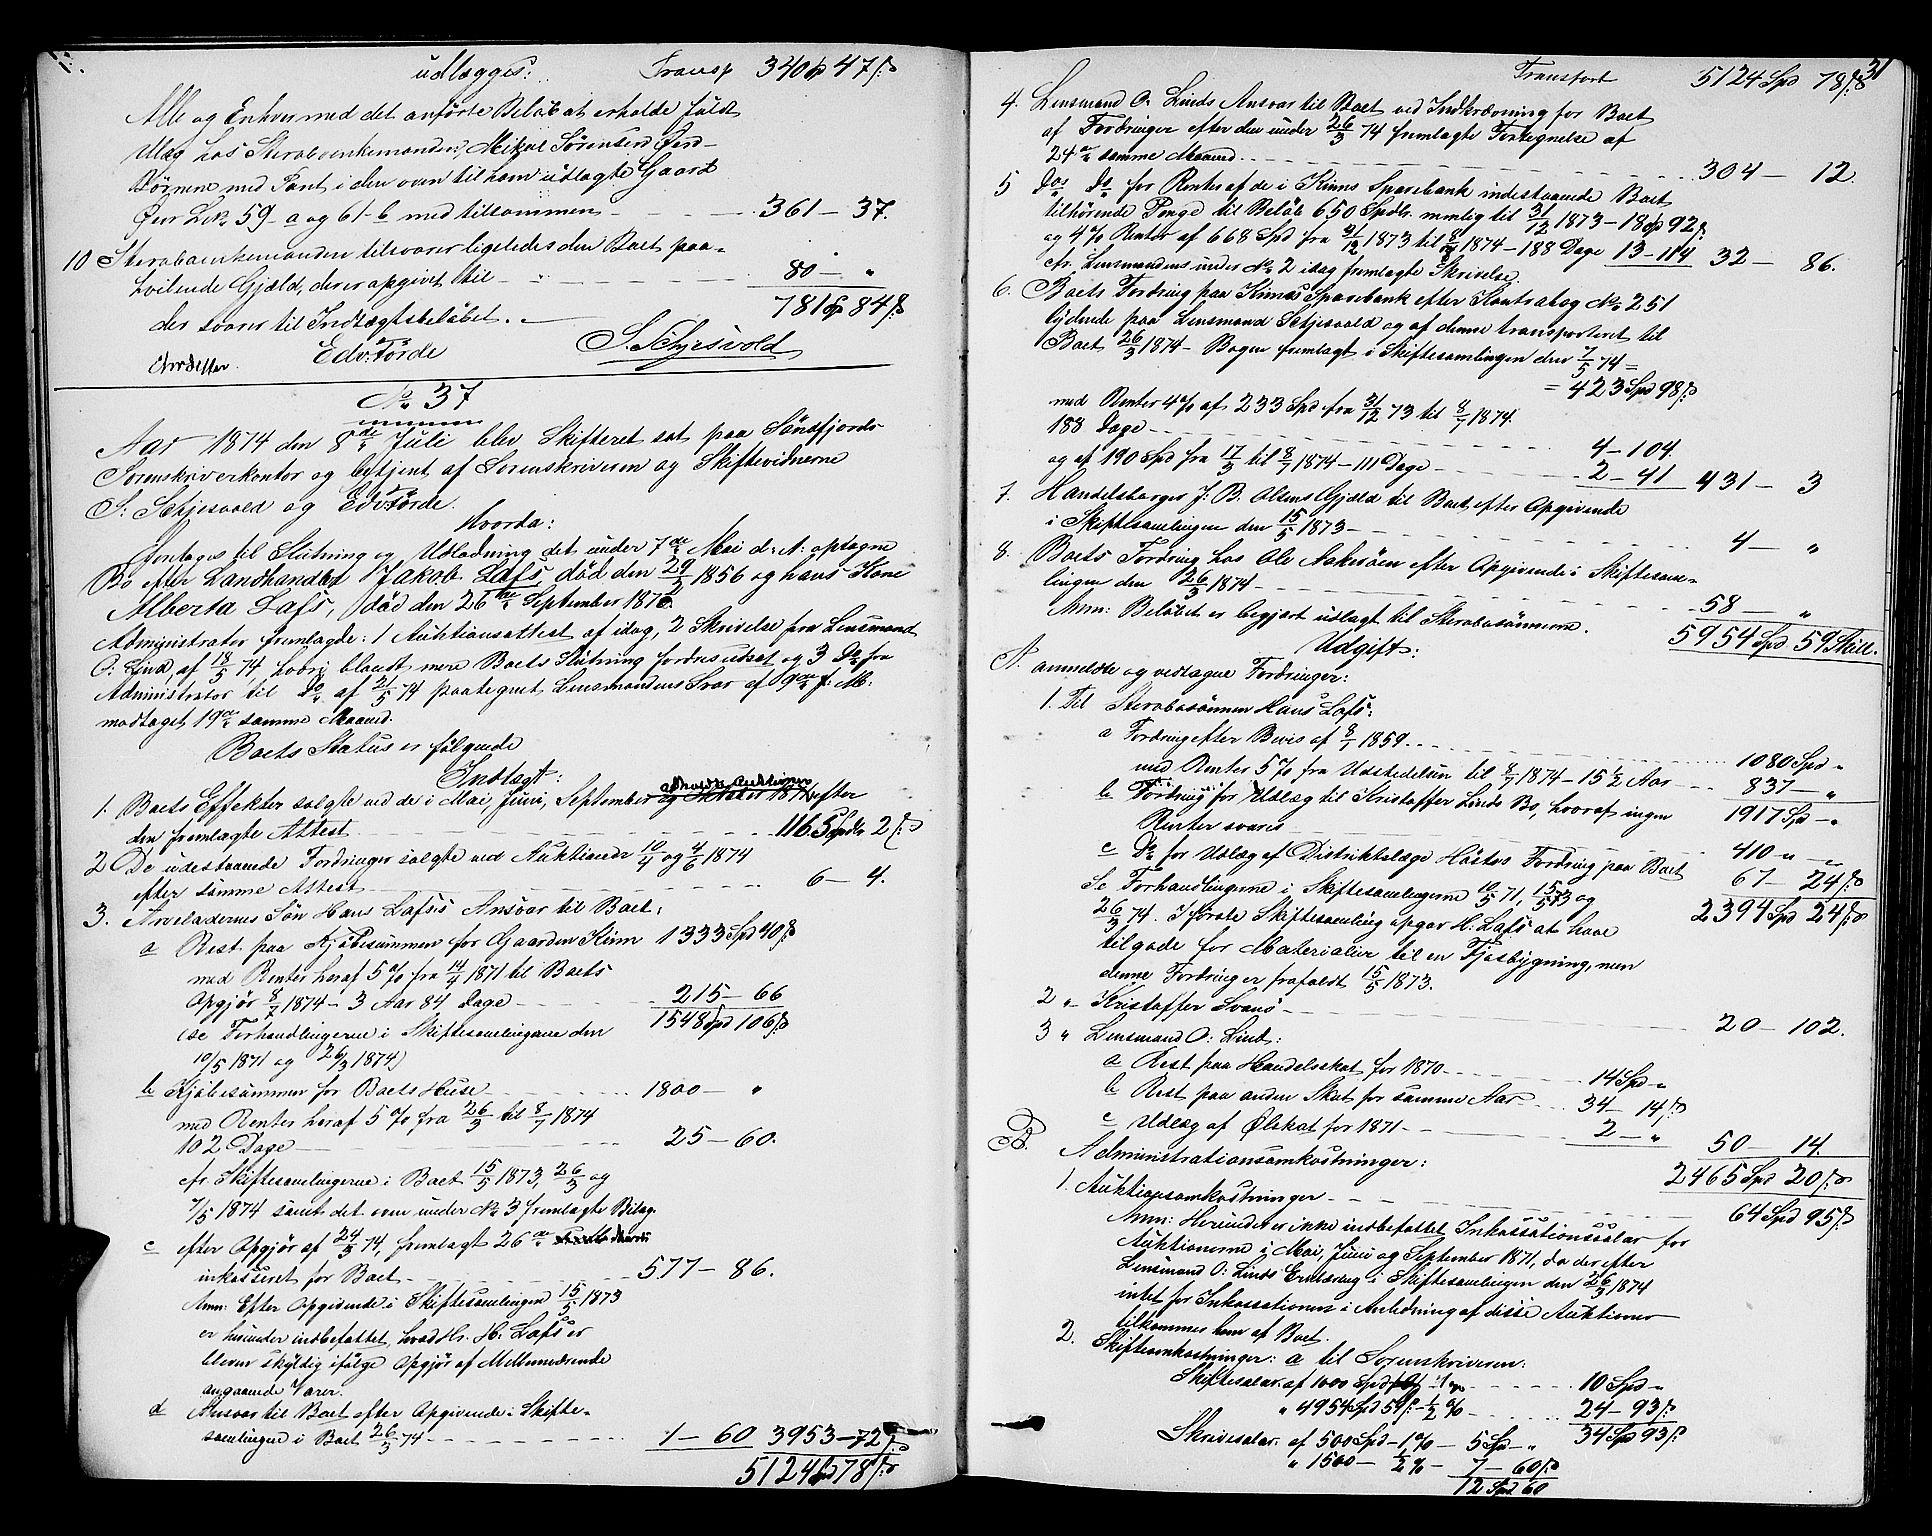 udlægges: Transp 340 Sp 47 ß
Alle og Enhver med det anførte Beløb at erholde fuldt
Udlæg hos Sterboenkemanden, Mikal Sørensen Øren
Børnene med Pant i den oven til ham udlagte Gaard
Øren L No 59-a og 61-b med tilsammen 361 — 37.
10 Sterboenkemanden tilsvarer ligeledes den Boet paa-
hvilende Gjæld, der er opgivet til 80 — "
der svarer til Indtægtsbeløbet. 781 Sp 84 ß
Edv. Førde S. Setjesvold
No 37
Aar 1874 den 8de Juli blev Skifteret sat paa Søndfjords
Sorenskriverkontor og betjent af Sorenskriveren og Skiftevidnerne
S. Setjesvold og Edv. Førde.
Hvorda:
Foretages til Slutning og Udlodning det under 7de Mai d: A: optagne
Bo efter Landhandler Jakob Lafs, død den 29/2 1856 og hans Kone
Alberta Lafs, død den 26de September 1870.
Administrator fremlagde: 1 Auktionsattest af idag, 2 Skrivelse fra Lensmand
O. Lind, af 18/5 74 hvori blandt mere Boets Slutning fordres udsat og 3 Do fra
Administrator til Do af 21/5 74 paategnet Lensmandens Svar af 9de f: M:
modtaget 19de samme Maaned.
Boets Status er følgende
Indtægt:
afholdte Auktioner
1. Boets Effekter solgte ved de i Mai, Juni, September og Oktober 1871 efter
den fremlagte Attest 1165 Spdlr 2 ß
2 De udestaaende Fordringer solgte ved Auktioner 10/4 og 4/6 1874
efter samme Attest 6 — 4.
3. Arveladernes Søn Hans Lafs's Ansvar til Boet:
a Rest paa Kjøbesummen for Gaarden Kinn 1333 Spd 40 ß
med Renter heraf 5 % fra 14/4 1871 til Boets
Opgjør 8/7 1874 — 3 Aar 84 Dage 215 — 66
(se Forhandlingerne i Skiftesamlingerne den 1548 Spd 106 ß
10/5 1871 og 26/3 1874)
b Kjøbesummen for Boets Huse 1800 — "
med Renter heraf 5 % fra 26/3 til 8/7 1874
102 Dage 25 — 60.
cfr. Skiftesamlingerne i Boet 15/5 1873, 26/3 og
7/5 1874 samt det oven under No 3 fremlagte Bilag.
c efter Opgjør af 24/3 74, fremlagt 26de
inkasseret for Boet 577 — 86.
Anm: Efter Opgivende i Skiftesamlingen 15/5 1873
er herunder indbefattet, hvad Hr. H. Lafs er
bleven skyldig ifølge Opgjør af Mellemværende
angaaende Varer.
d Ansvar til Boet efter Opgivende i Skifte-
samlingen i Boet 26/3 74 1 — 60 3953 — 72 ß
5124 Spd 78 ß
31
Transport 5124 Spd 78 ß
4. Lensmand O. Linds Ansvar til Boet ved Indkrævning for Boet
af Fordringer efter den under 26/3 74 fremlagte Fortegnelse af
24de samme Maaned 304 — 12.
5 Dos Do for Renter af de i Kinns Sparebank indestaaende Boet
tilhørende Penge til Beløb 650 Spdlr. nemlig til 31/12 1873 — 18 Sp 92 ß
og 4 % Renter af 668 Spd fra 31/12 1873 til 8/7 1874 — 188 Dage 13 — 114 32 — 86.
cfr. Lensmandens under No 2 idag fremlagte Skrivelse.
6. Boets Fordring paa Kinns Sparebank efter Kontrabog No 251
lydende paa Lensmand Setjesvold og af denne transporteret til
Boet 26/3 1874 — Bogen fremlagt i Skiftesamlingen den 7/5 74 =
= 423 Spd 98 ß
med Renter 4 % af 233 Spd fra 31/12 73 til 8/7 1874.
188 Dage 4 — 104.
og af 190 Spd fra 17/3 til 8/7 1874 — 111 Dage 2 — 41 431 — 3
7. Handelsborger J. B. Olsens Gjæld til Boet, efter Opgivende
i Skiftesamlingen den 15/5 1873 4 — "
8. Boets Fordring hos Ole Aakerøen efter Opgivende i Skiftesam-
lingen den 26/3 1874 58 — "
Anm: Beløbet er begjært udlagt til Sterbosønnerne. 5954 Spd 59 Skill.
Udgift:
A. anmeldte og vedtagne Fordringer:
1. Til Sterbosønnen Hans Lafs:
a Fordring efter Bevis af 8/1 1859 1080 Spd "
med Renter 5 % fra Udstedelsen til 8/7 1874 — 15 1/2 Aar 837 — "
b Fordring for Udlæg til Kristoffer Linds Bo, hvoraf ingen 1917 Sp — "
Renter svares 410 — "
c Do for Udlæg af Distriktslæge Høstes Fordring paa Boet 67 — 24 ß
Se Forhandlingerne i Skiftesamlingerne 10/5 71, 15/5 73 og 2394 Spd 24 ß
26/3 74. I første Skiftesamling opgav H. Lafs at have
tilgode for Materialier til en Fjøsbygning, men
denne Fordring er frafaldt 15/5 1873.
2 " Kristoffer Svanø 20 — 102.
3 " Lensmand O: Lind:
a Rest paa Handelsskat for 1870 14 Spd "
b Rest paa anden Skat for samme Aar 34 — 14 ß
c Udlæg af Ølskat for 1871 2 — " 50 — 14.
B. Administrationsomkostninger: 2465 Spd 20 ß
1. Auktionsomkostninger 64 Spd 95 ß
Anm: Herunder er ikke indbefattet Inkassationssalær for
Auktionerne i Mai, Juni og September 1871, da der efter
Lensmand O: Linds Erklæring i Skiftesamlingen den 26/3 1874
intet for Inkassationen i Anledning af disse Auktioner
tilkommer ham af Boet.
2. Skifteomkostninger: a til Sorenskriveren:
Skiftesalær. af 1000 Spd 1 % 10 Spd "
" 4954 Spd 59 ß 1/2 % 24 — 93 ß
34 Spd 93 ß
Skrivesalær. af 500 Spd — 1 % — 5 Sp — "
" 1500 — 1/2 % — 7 — 60 ß
12 Spd 60